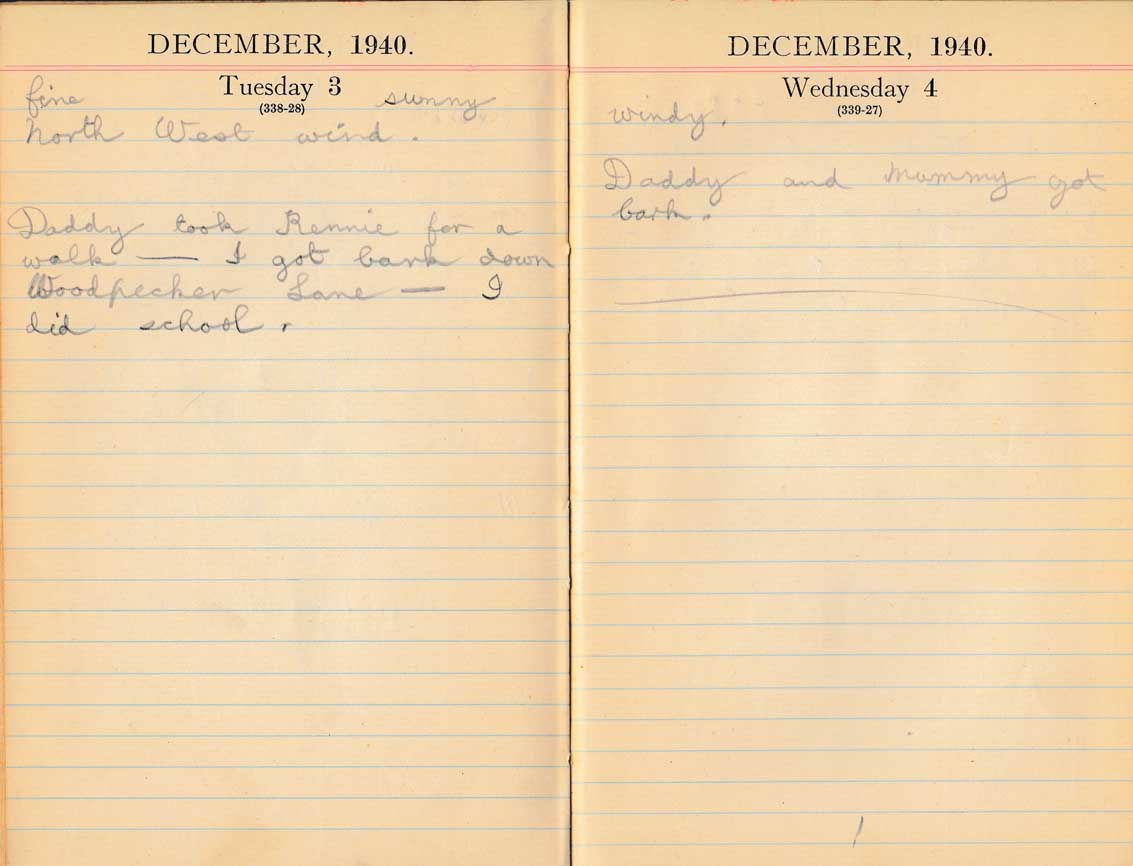 DECEMBER, 1940.
Tuesday 3
(338-28)
fine sunny
North West wind.
Daddy took Rennie for a
walk — I got bark down
Woodpecker Lane — I
did school.
DECEMBER, 1940.
Wednesday 4
(339-27)
windy.
Daddy and Mummy got
bark.